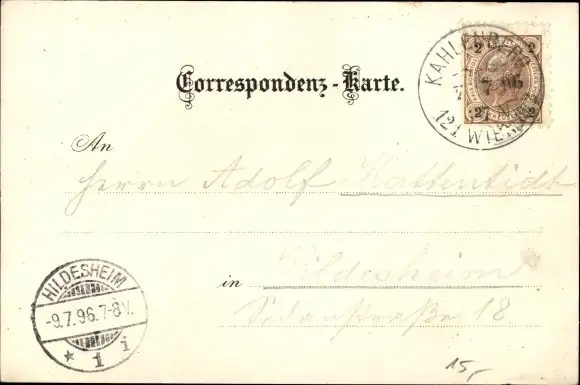 Correspondenz-Karte.
KAHLENBERG
7 96
121 WIEN
2 2
2 2
An
Herrn Adolf Kattentidt
in Hildesheim
Sedanstraße 18
HILDESHEIM
-9.7.96.7-8V.
* 1 i
15,-